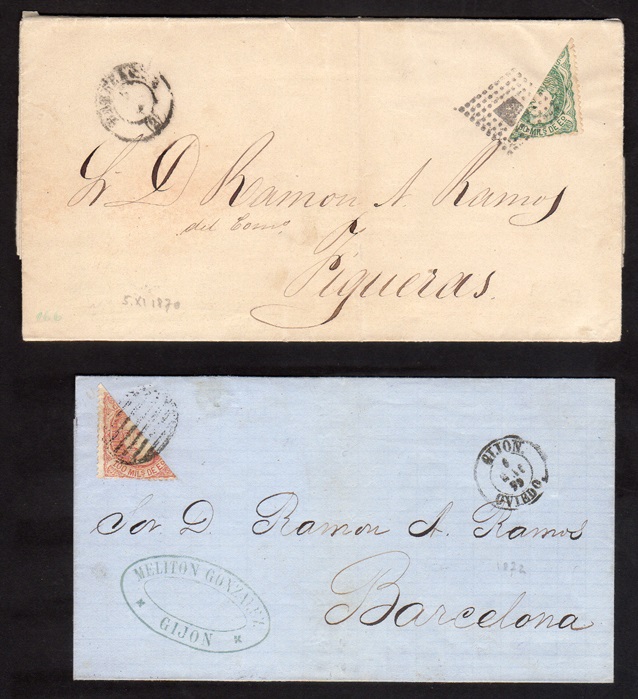 Sr D Ramon A. Ramos
del Como
Figueras.
5.XI 1870
MILS DE ES
GIJON.
OVIEDO.
100 MILS DE ES
Sor. D. Ramon A. Ramos
1872
Barcelona
MELITON GONZALEZ
GIJON